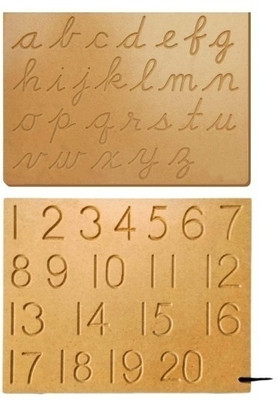 a b c d e f g
h i j k l m n
o p q r s t u
v w x y z
1 2 3 4 5 6 7
8 9 10 11 12
13 14 15 16
17 18 19 20